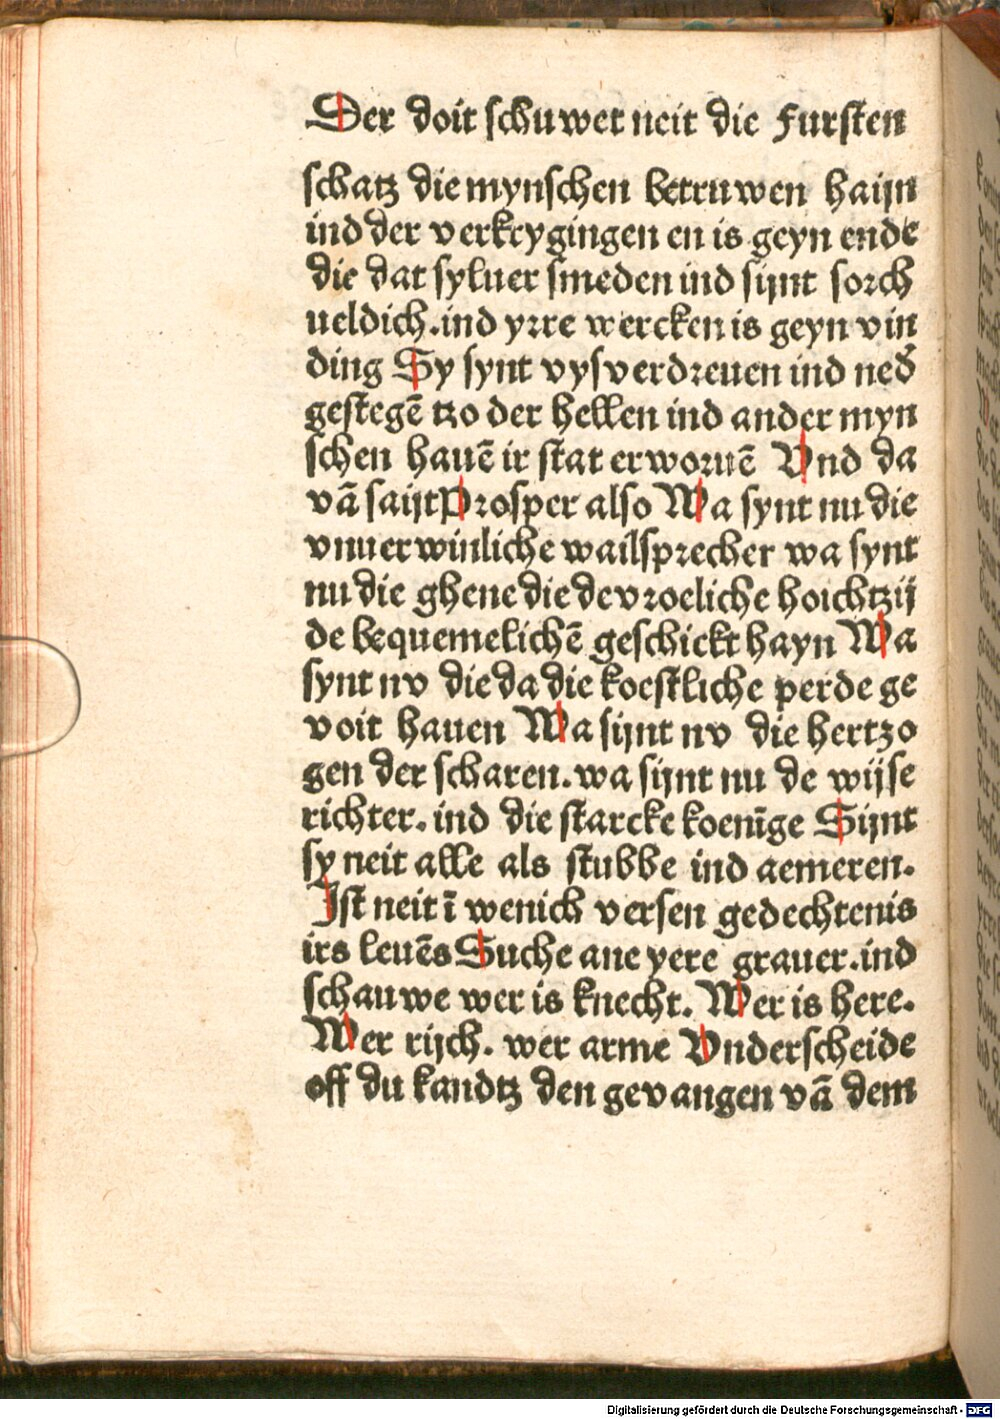 Der doit schuwet neit die Fursten
schatz die mynschen betruwen haijn
ind der verkrygingen en is geyn ende
die dat syluer smeden ind sijnt sorch
ueldich.ind yrre wercken is geyn vin
ding Sy synt vysverdreuen ind ned̄
gestegē tzo der hellen ind ander myn
schen hauē ir stat erworuē Vnd da
vā saijt Prosper also Wa synt nu die
vnuerwinliche wailsprecher wa synt
nu die ghene die de vroeliche hoichtzij
de bequemelichē geschickt hayn Wa
synt nv die da die koestliche perde ge
voit hauen Wa sijnt nv die hertzo
gen der scharen.wa sijnt nu de wijse
richter.ind die starcke koenīge Sijnt
sy neit alle als stubbe ind aemeren.
Ist neit ī wenich versen gedechtenis
irs leuēs Suche ane yere grauer.ind
schauwe wer is knecht. Wer is here.
Wer rijch. wer arme Vnderscheide
off du kandtz den gevangen vā dem
Digitalisierung gefördert durch die Deutsche Forschungsgemeinschaft - DFG